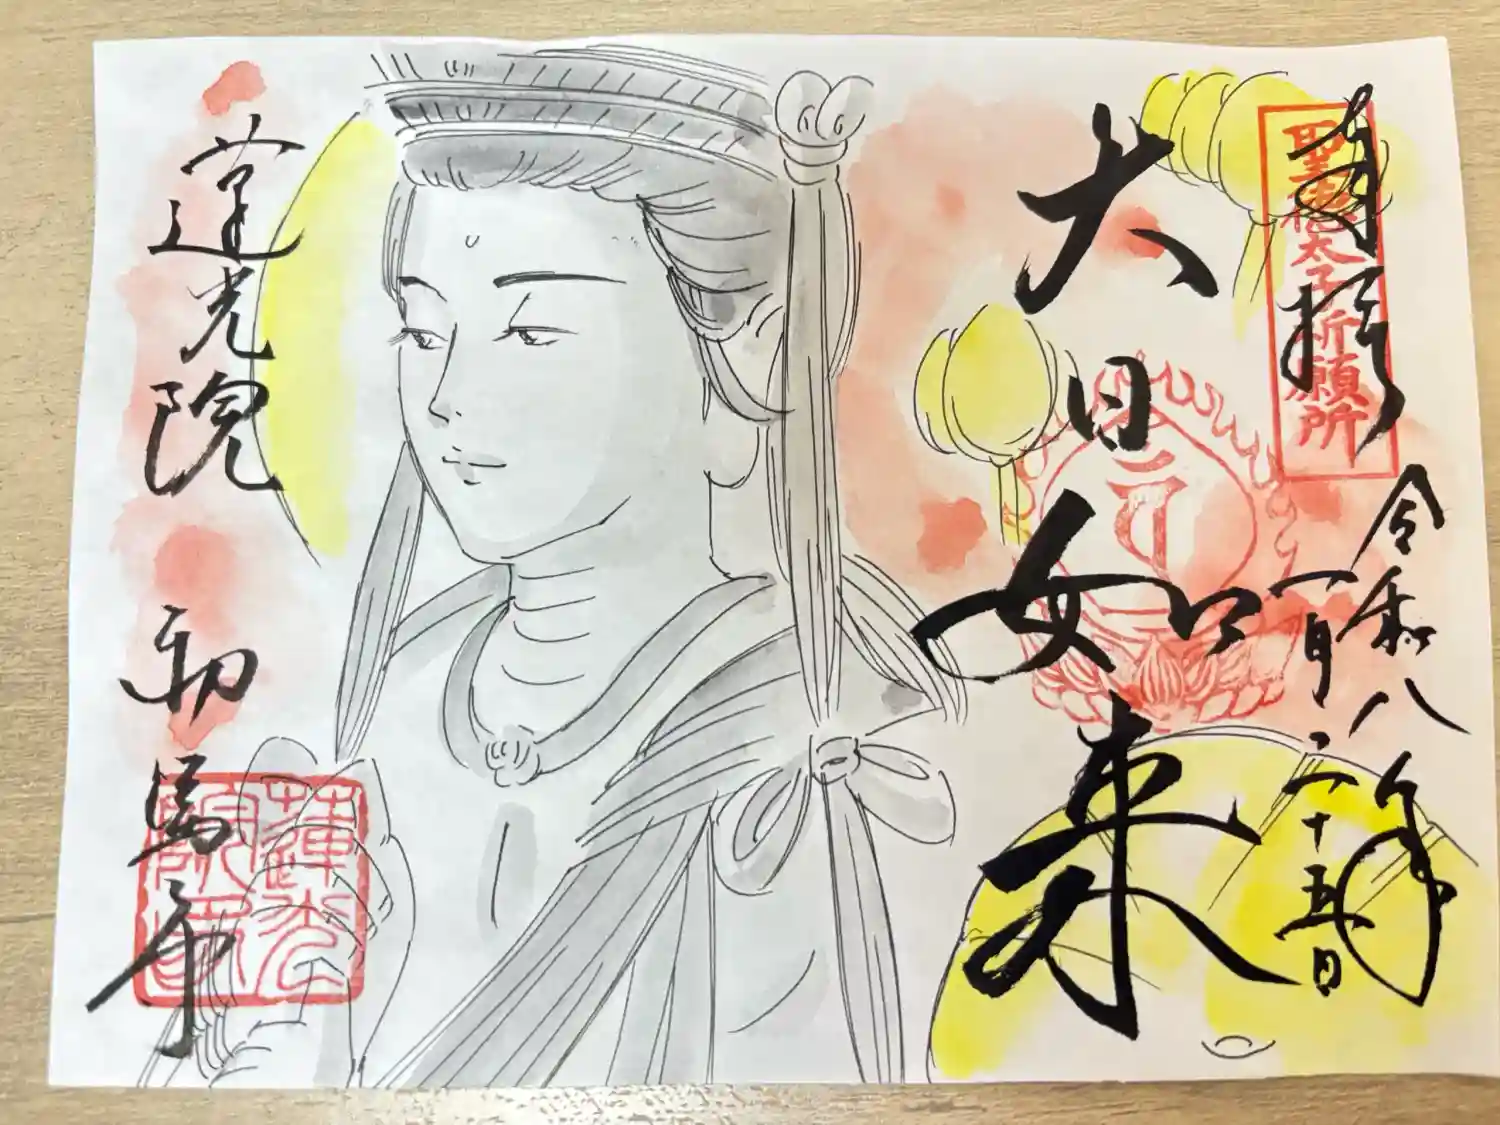 奉拝
聖徳太子祈願所
令和八年
一月二十五日
大日如来
蓮光院
初馬寺
蓮光院